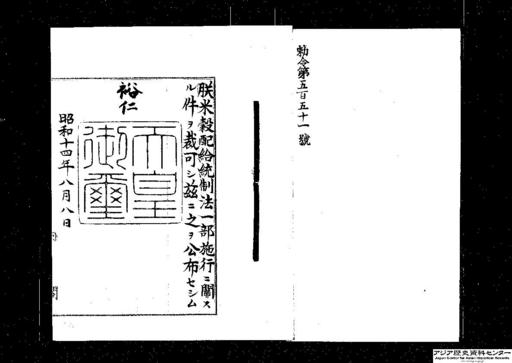 勅令第五百五十一號
朕米穀配給統制法一部施行ニ關ス
ル件ヲ裁可シ茲ニ之ヲ公布セシム
裕仁
天皇
御璽
昭和十四年八月八日
内
閣
アジア歴史資料センター
Japan Center for Asian Historical Records